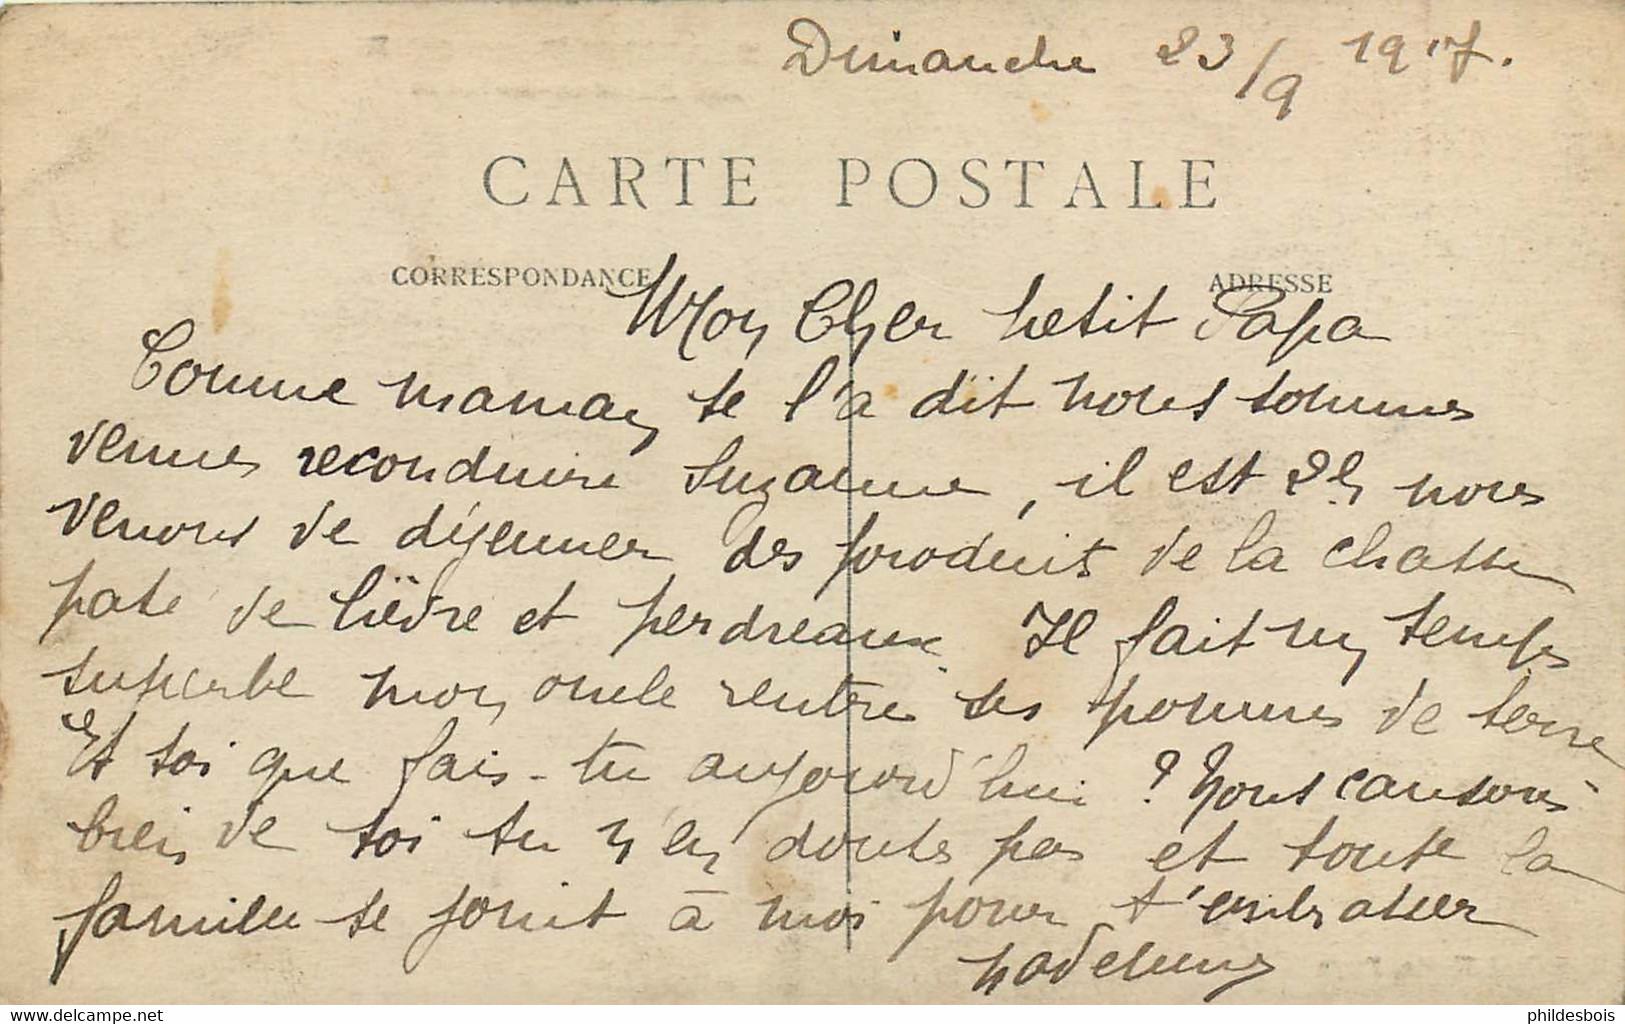 Dimanche 23/9 1917.
CARTE POSTALE
CORRESPONDANCE ADRESSE
Mon Cher petit Papa
Comme maman te l'a dit nous sommes
venues reconduire Suzanne, il est 2h nous
venons de déjeuner des produits de la chasse
paté de lièvre et perdreaux. Il fait un temps
superbe mon oncle rentre ses pommes de terre
Et toi que fais-tu aujourd'hui ? Nous causons
bien de toi tu n'en doutes pas et toute la
famille se joint à moi pour t'embrasser
Madeleine
delcampe.net
phildesbois